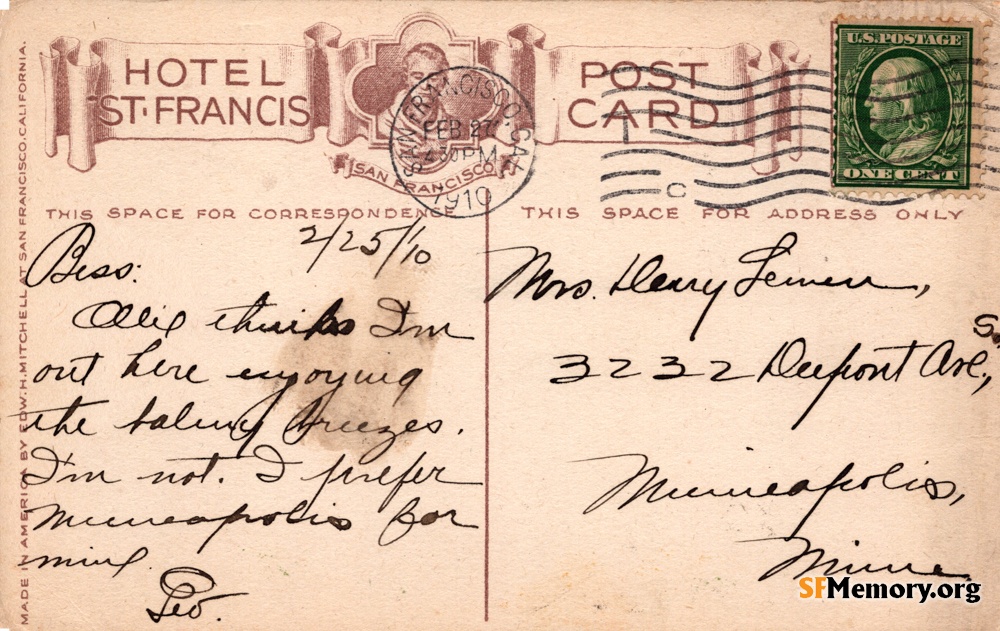 HOTEL
ST. FRANCIS
SAN FRANCISCO
POST
CARD
SAN FRANCISCO, CAL.
FEB 27
4 30 PM
1910
C
U.S. POSTAGE
ONE CENT
THIS SPACE FOR CORRESPONDENCE
THIS SPACE FOR ADDRESS ONLY
MADE IN AMERICA BY EDW. H. MITCHELL AT SAN FRANCISCO, CALIFORNIA.
2/25/10
Bess:
Ollie thinks I'm
out here enjoying
the balmy breezes.
I'm not. I prefer
Minneapolis for
mine.
Geo.
Mrs. Henry
3232 Dupont Ave, S.
Minneapolis,
Minne.
SFMemory.org